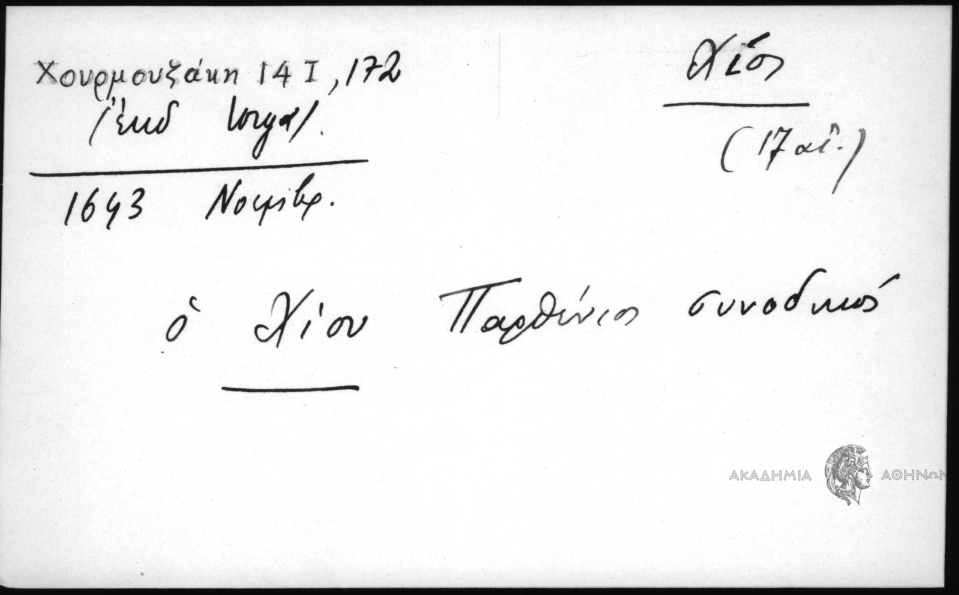 Χουρμουζάκη 14 Ι, 172
Χίος
/ἔκδ Ιοργα/.
(17 αἰ.)
1643 Νοεμβρ.
ὁ Χίου Παρθένιος συνοδικῶς
ΑΚΑΔΗΜΙΑ ΑΘΗΝΩΝ